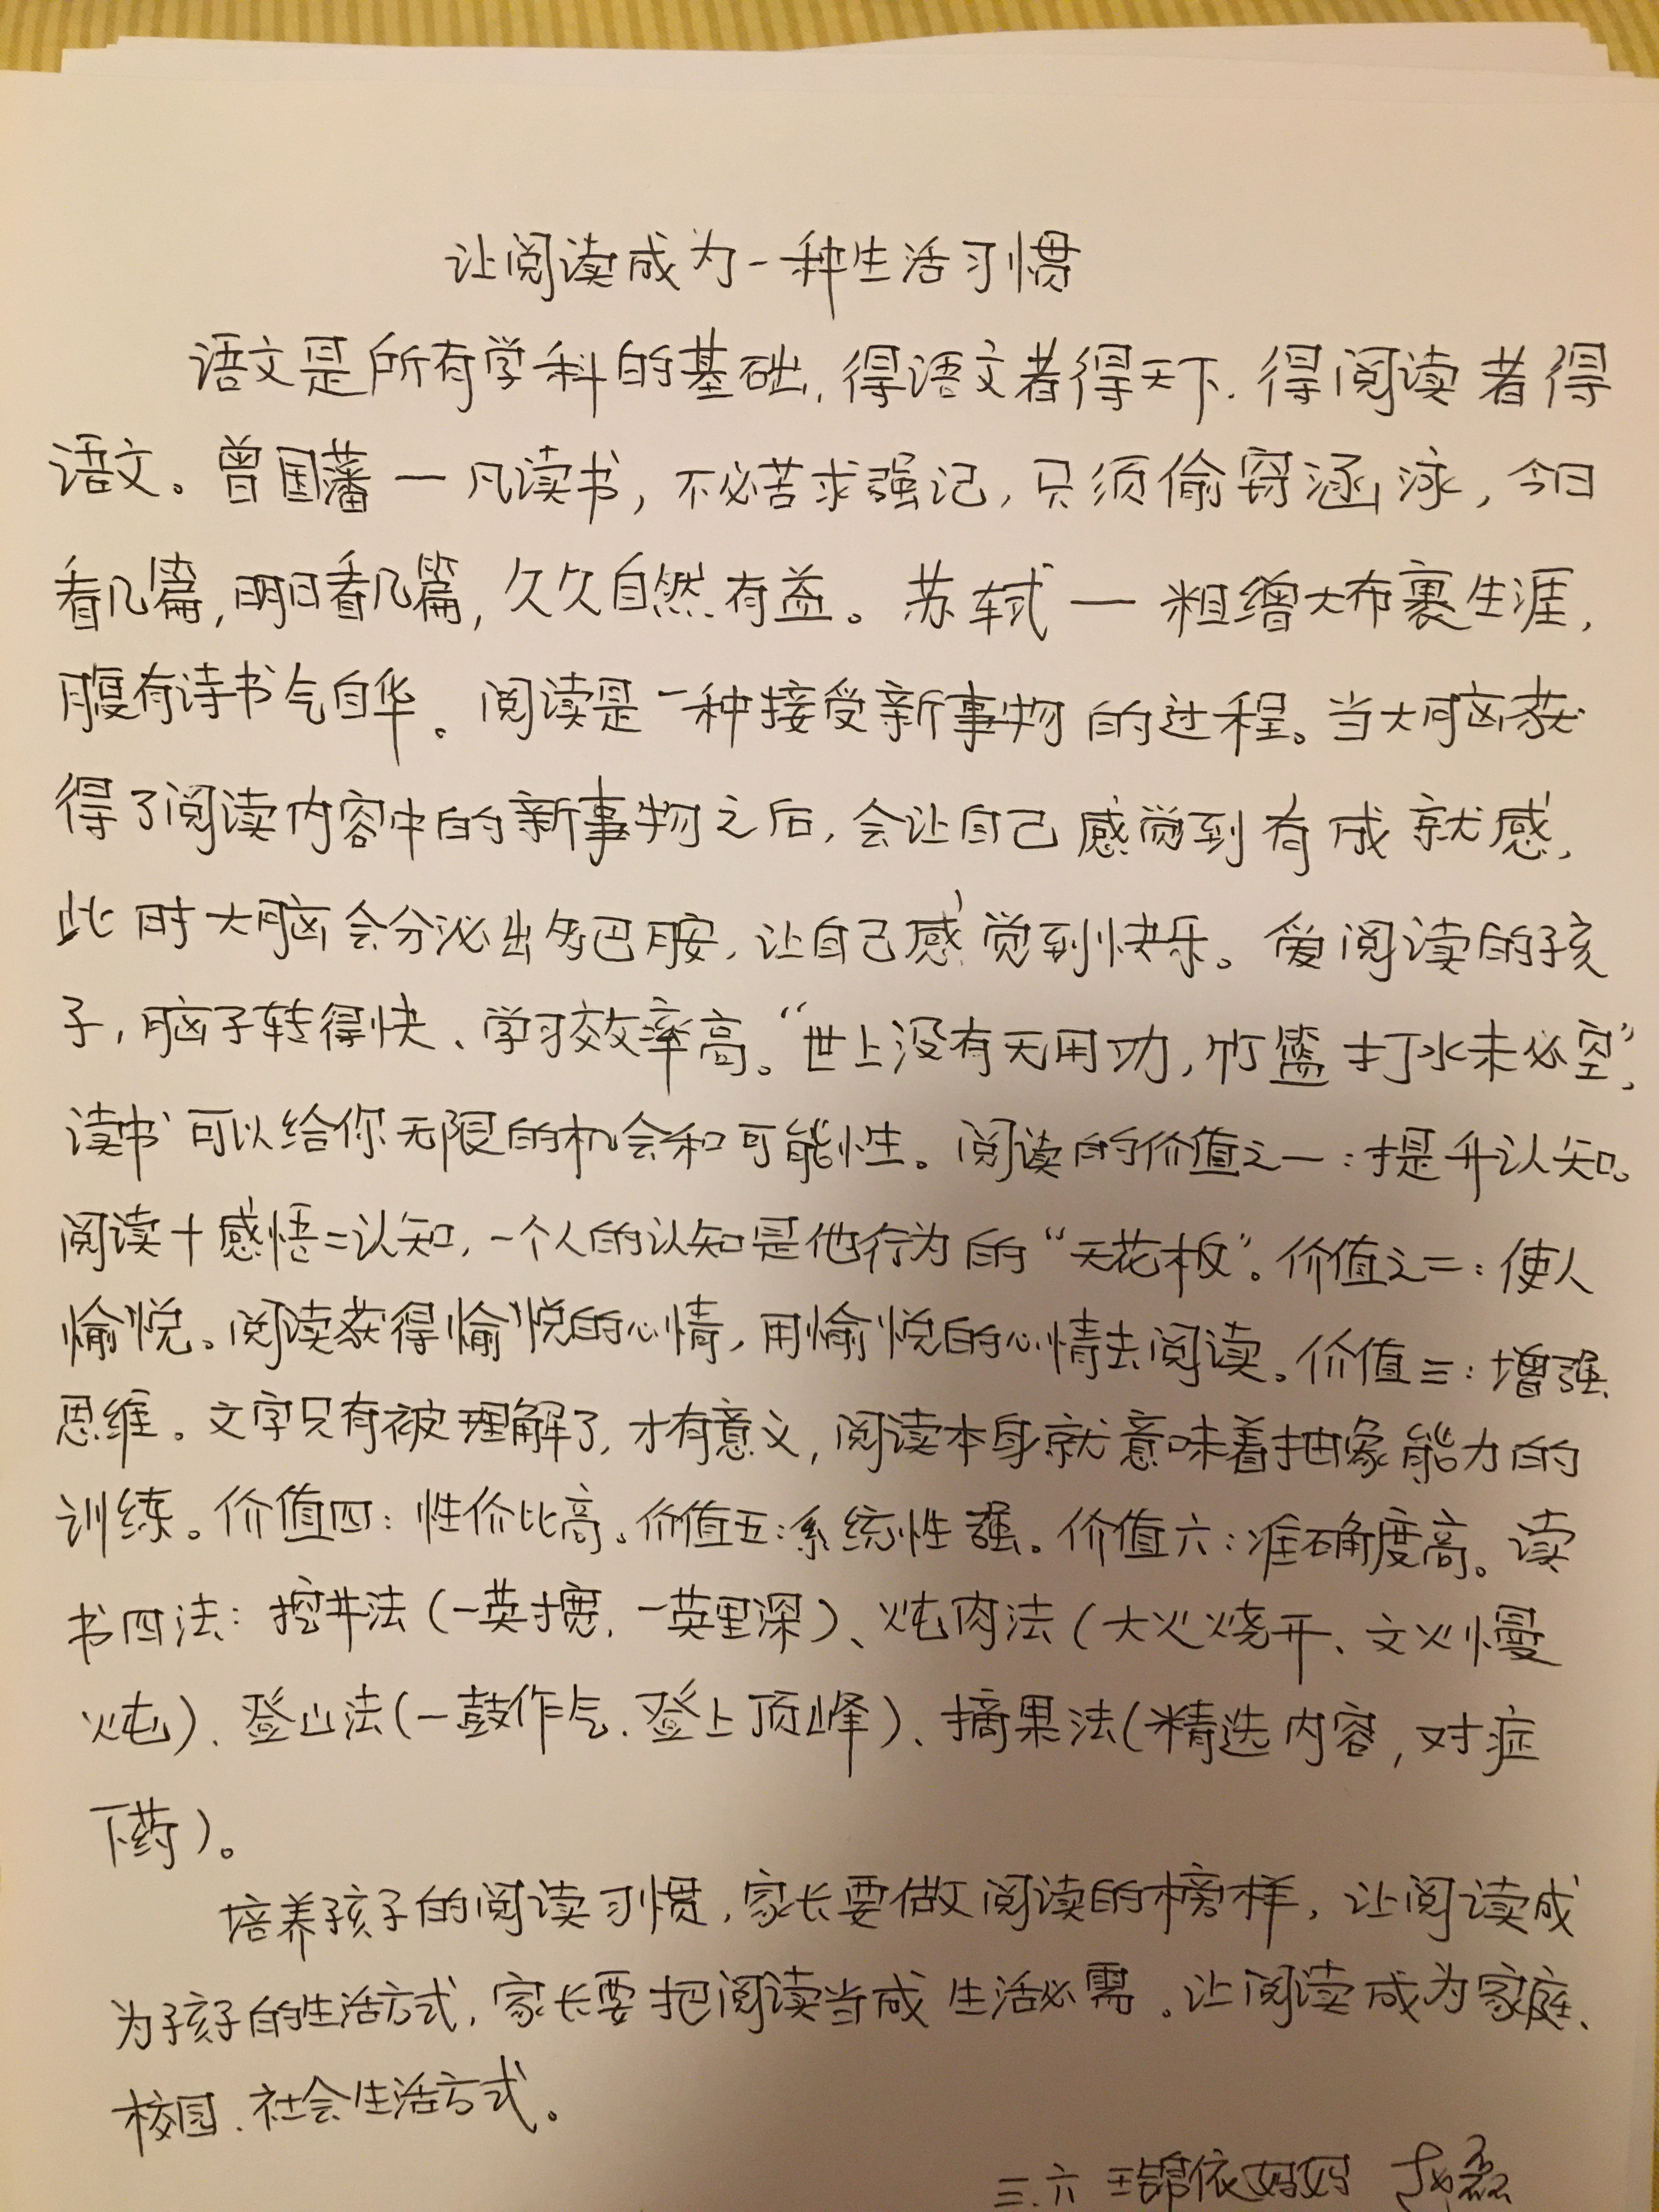 让阅读成为一种生活习惯
语文是所有学科的基础,得语文者得天下.得阅读者得
语文。曾国藩一凡读书,不必苦求强记,只须偷窃涵泳,今日
看几篇,明日看几篇,久久自然有益。苏轼一粗缯大布裹生涯,
腹有诗书气自华。阅读是一种接受新事物的过程。当大脑获
得了阅读内容中的新事物之后,会让自己感觉到有成就感,
此时大脑会分泌出多巴胺,让自己感觉到快乐。爱阅读的孩
子,脑子转得快、学习效率高。“世上没有无用功,竹篮打水未必空”,
读书可以给你无限的机会和可能性。阅读的价值之一:提升认知。
阅读+感悟=认知,一个人的认知是他行为的“天花板”。价值之二:使人
愉悦。阅读获得愉悦的心情,用愉悦的心情去阅读。价值三:增强
思维。文字只有被理解了,才有意义,阅读本身就意味着抽象能力的
训练。价值四:性价比高。价值五:系统性强。价值六:准确度高。读
书四法:挖井法(一英寸宽,一英里深)、炖肉法(大火烧开、文火慢
炖)、登山法(一鼓作气.登上顶峰)、摘果法(精选内容,对症
下药)。
培养孩子的阅读习惯,家长要做阅读的榜样,让阅读成
为孩子的生活方式,家长要把阅读当成生活必需。让阅读成为家庭、
校园、社会生活方式。
三.六 王锦依妈妈